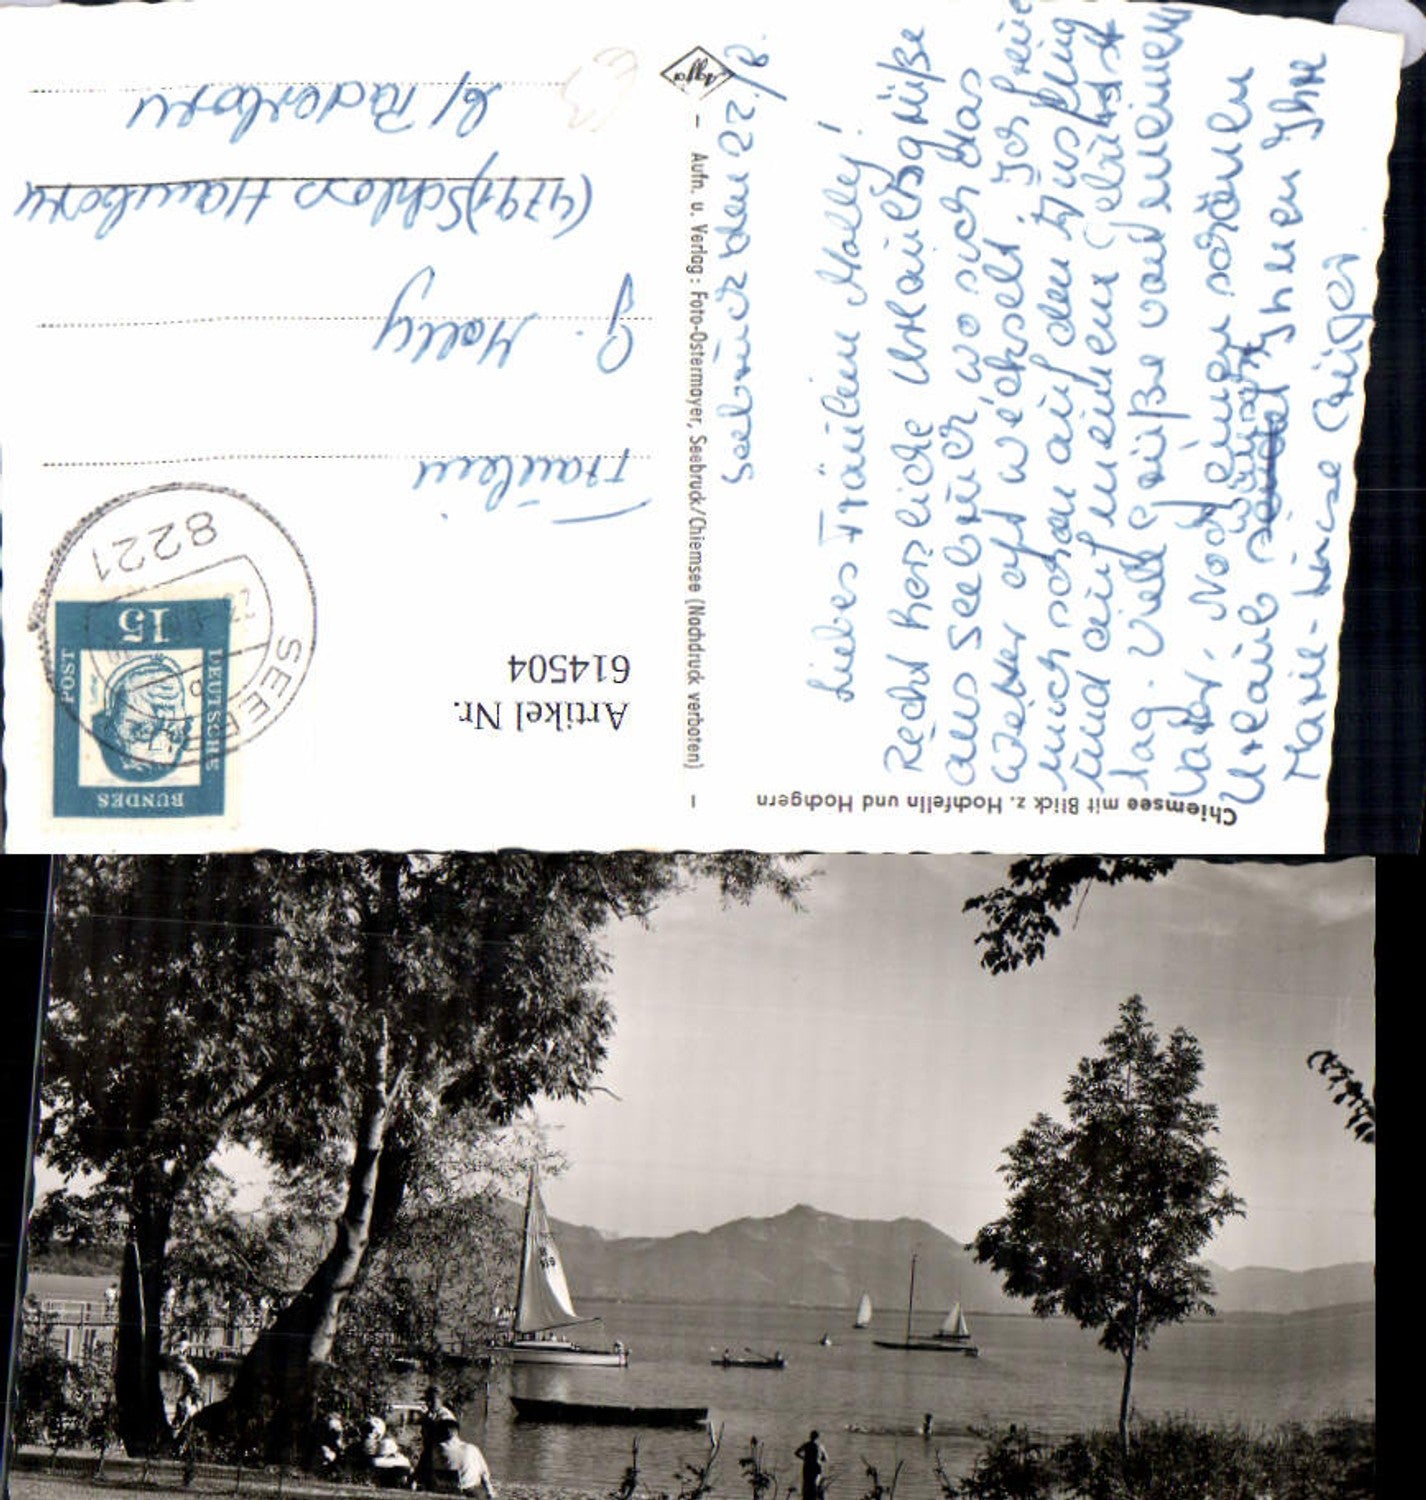 Chiemsee mit Blick z. Hochfelln und Hochgern
Seebruck den 22./8.
Liebes Fräulein Molly!
Recht herzliche Urlaubsgrüße
aus Seebruck, wo sich das
Wetter oft wechselt. Ich freue
mich schon auf den Ausflug
und auf meinem Geburts
tag. Viele Grüße von meinem
Vater. Noch einen schönen
Urlaub wünscht Ihnen Ihre
Marie-Luise
– Aufn. u. Verlag: Foto-Ostermayer, Seebruck/Chiemsee (Nachdruck verboten) –
Agfa
Artikel Nr.
614504
BUNDES
POST
DEUTSCHE
15
8221
SEEBR
Fräulein
G. Molly
(4791) Schloss Hamborn
b/ Paderborn